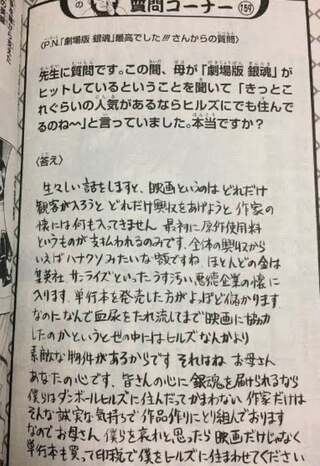 の
質問コーナー
159
〈P.N.「劇場版 銀魂」最高でした!!!さんからの質問〉
先生に質問です。この間、母が「劇場版 銀魂」が
ヒットしているということを聞いて「きっとこ
れぐらいの人気があるならヒルズにでも住んで
るのね〜」と言っていました。本当ですか?
〈答え〉
生々しい話をしますと、映画というのは どれだけ
観客が入ろうと どれだけ興収をあげようと 作家の
懐には何も入ってきません 最初に原作使用料
というものが支払われるのみです。全体の興収から
いえば ハナクソみたいな額ですね ほとんどの金は
集英社 サンライズといったうす汚い悪徳企業の懐に
入ります 単行本を発売した方がよほど儲かります
なのになんで血尿をたれ流してまで映画に協力
したのかというと世の中にはヒルズなんかより
素敵な物件があるからです それはね お母さん
あなたの心です、皆さんの心に銀魂を届けられるなら
僕らはダンボールヒルズに住んだってかまわない 作家だけは
そんな誠実な気持ちで作品作りにとり組んでおります
なのでお母さん 僕らを哀れと思ったら映画だけじゃなく
単行本も買って印税で僕をヒルズに住まわせてください